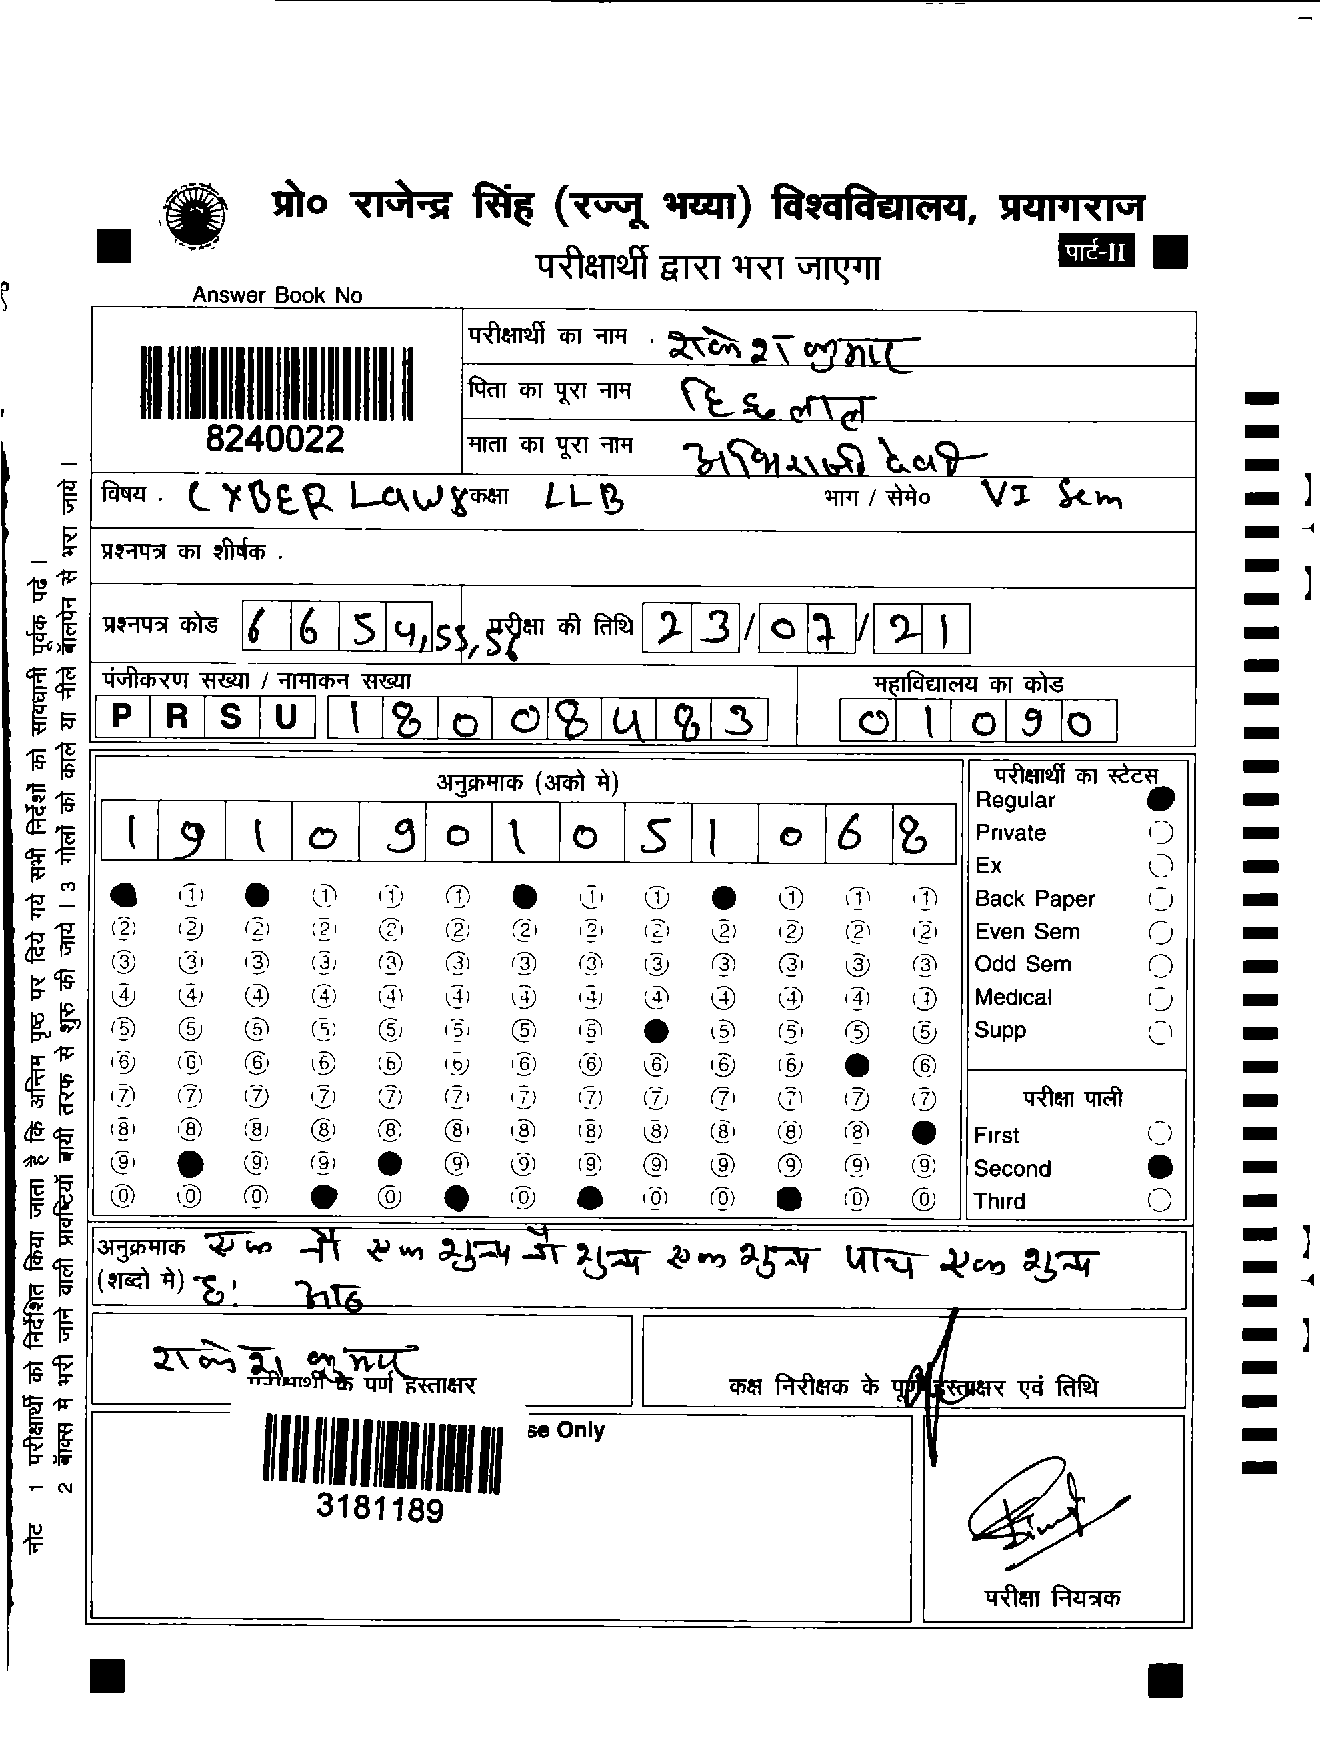 प्रो० राजेन्द्र सिंह (रज्जू भय्या) विश्वविद्यालय, प्रयागराज
परीक्षार्थी द्वारा भरा जाएगा
पार्ट-II
Answer Book No
8240022
परीक्षार्थी का नाम . राकेश कुमार
पिता का पूरा नाम
माता का पूरा नाम देवी
विषय . CYBER Laws कक्षा LLB भाग / सेमे० VI Sem
प्रश्नपत्र का शीर्षक .
प्रश्नपत्र कोड 6654,55,56 परीक्षा की तिथि 23/07/21
पंजीकरण सख्या / नामाकन सख्या
PRSU18008483
महाविद्यालय का कोड
01090
अनुक्रमाक (अको मे)
1910901051068
1 1 1 1 1 1 1 1
2 2 2 2 2 2 2 2 2 2 2 2 2
3 3 3 3 3 3 3 3 3 3 3 3 3
4 4 4 4 4 4 4 4 4 4 4 4 4
5 5 5 5 5 5 5 5 5 5 5 5
6 6 6 6 6 6 6 6 6 6 6 6
7 7 7 7 7 7 7 7 7 7 7 7 7
8 8 8 8 8 8 8 8 8 8 8 8
9 9 9 9 9 9 9 9 9 9 9
0 0 0 0 0 0 0 0
परीक्षार्थी का स्टेटस
Regular
Private
Ex
Back Paper
Even Sem
Odd Sem
Medical
Supp
परीक्षा पाली
First
Second
Third
अनुक्रमाक एक नौ एक शुन्य नौ शुन्य एक शुन्य पाच एक शुन्य
(शब्दो मे) छः आठ
राकेश कुमार
परीक्षार्थी के पूर्ण हस्ताक्षर
कक्ष निरीक्षक के पूर्ण हस्ताक्षर एवं तिथि
se Only
3181189
परीक्षा नियत्रक
नोट 1 परीक्षार्थी को निर्देशित किया जाता है कि अन्तिम पृष्ठ पर दिये गये सभी निर्देशो को सावधानी पूर्वक पढे ।
2 बॉक्स मे भरी जाने वाली प्रविष्टियॉ बायी तरफ से शुरु की जाये । 3 गोलो को काले या नीले बॉलपेन से भरा जाये ।